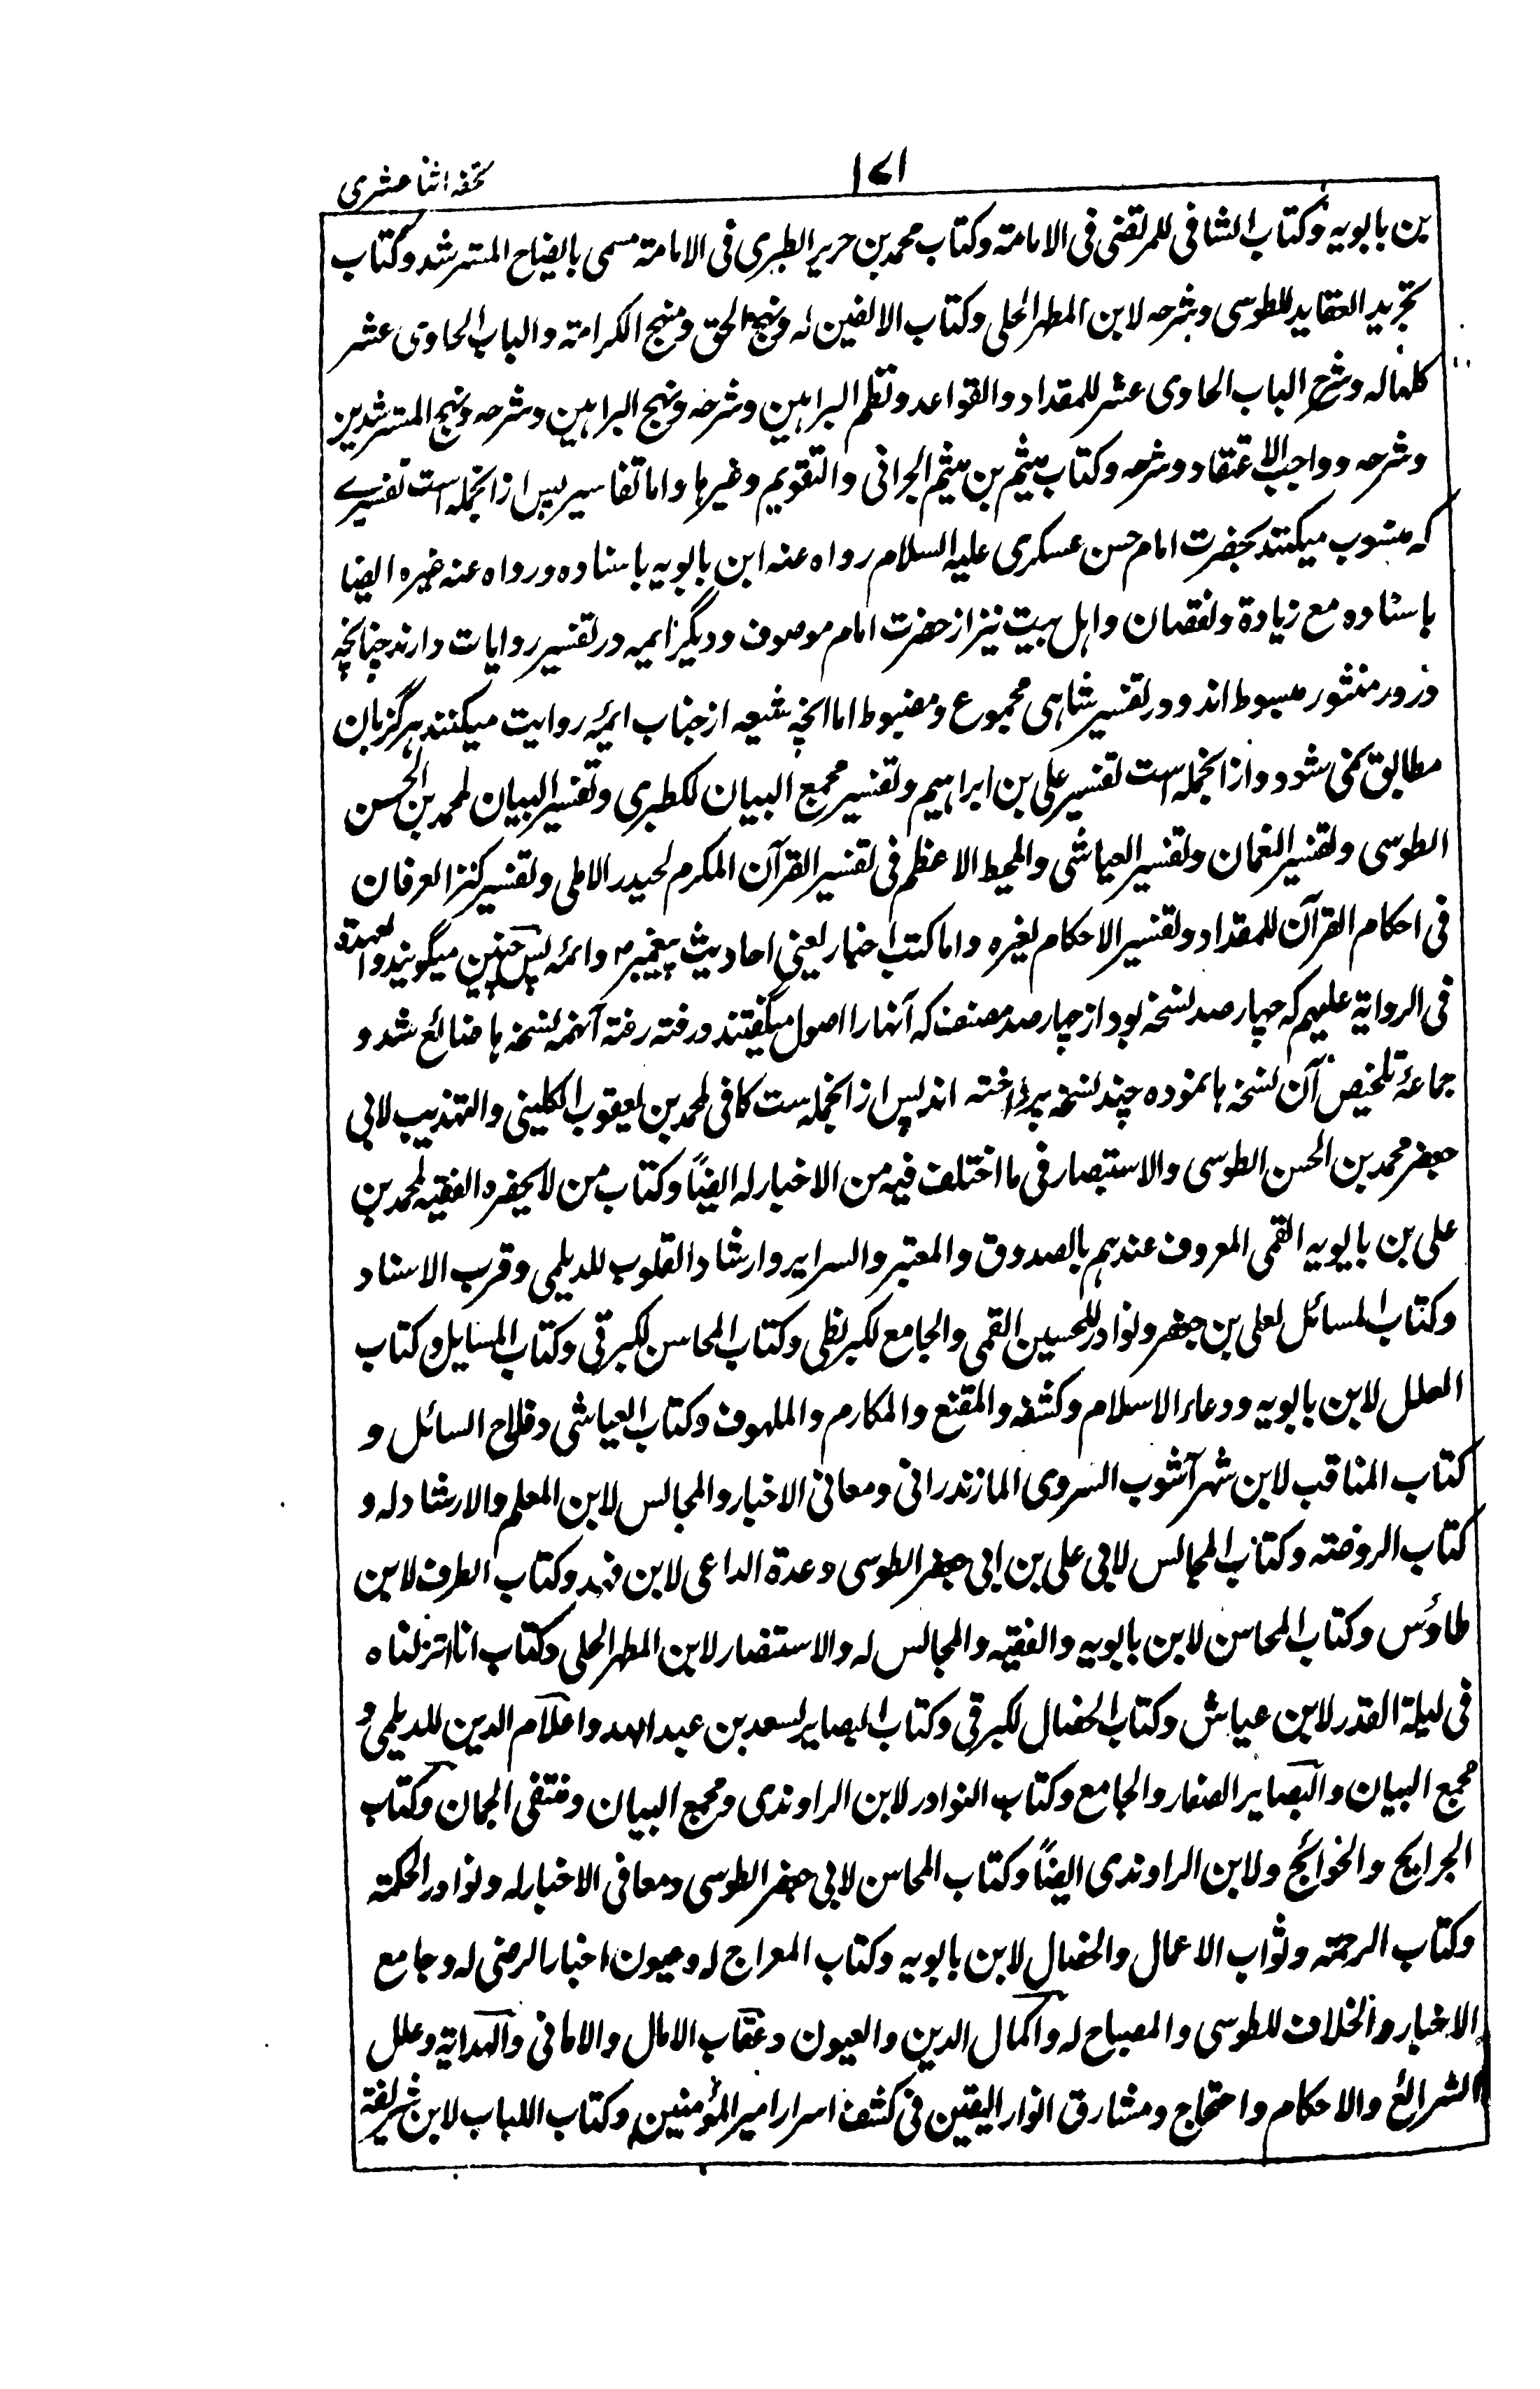 ۱۷۱
تحفه اثنا عشری
بن بابویه و کتاب الشافی للمرتضی فی الامامة و کتاب محمد بن جریر الطبری فی الامامة مسمی بایضاح المسترشد و کتاب
تجرید العقاید للطوسی و شرحه لابن المطهر الحلی و کتاب الالفین له و نهج الحق و منهج الکرامة و الباب الحاوی عشر
کلها له و شرح الباب الحاوی عشر للمقداد و القواعد و نظم البراهین و شرحه و نهج البراهین و شرحه و نهج المسترشدین
و شرحه و واجب الاعتقاد و شرحه و کتاب میثم بن میثم البحرانی و التقویم و غیرها و اما تفاسیر پس ازانجمله است تفسیرے
که منسوب میکنند بحضرت امام حسن عسکری علیه السلام رواه عنه ابن بابویه باسناده و رواه عنه غیره ایضا
باسناده مع زیادة و نقصان و اهل بیت نیز از حضرت امام موصوف و دیگر ایمه در تفسیر روایات دارند چنانچه
در در منثور مبسوط اند و در تفسیر شاهی مجموع و مضبوط اما انچه شیعه از جناب ائمه روایت میکنند هرگز بان
مطابق نمی شود و ازانجمله است تفسیر علی بن ابراهیم و تفسیر مجمع البیان للطبری و تفسیر البیان لمحمد بن الحسن
الطوسی و تفسیر النعمان و تفسیر العیاشی و المحیط الاعظم فی تفسیر القرآن المکرم لحیدر الاملی و تفسیر کنز العرفان
فی احکام القرآن للمقداد و تفسیر الاحکام لغیره و اما کتب اخبار یعنی احادیث پیغمبر ص و ائمه پس چنین میگویند و العهدة
فی الروایة علیهم که چهار صد نسخه بود از چهار صد مصنف که آنها را اصول میگفتند و رفته رفته آنهمه نسخه ها ضائع شد و
جماعهٔ تلخیص آن نسخه ها نموده چند نسخه پرداخته اند پس ازانجمله ست کافی لمحمد بن یعقوب الکلینی و التهذیب لابی
جعفر محمد بن الحسن الطوسی و الاستبصار فی ما اختلف فیه من الاخبار له ایضاً و کتاب من لا یحضره الفقیه لمحمد بن
علی بن بابویه القمی المعروف عندهم بالصدوق و المعتبر و السرایر و ارشاد القلوب للدیلمی و قرب الاسناد
و کتاب المسائل لعلی بن جعفر و نوادر للحسین القمی و الجامع للبزنطی و کتاب المحاسن للبرقی و کتاب المسایل و کتاب
العلل لابن بابویه و دعاء الاسلام و کشفه و المقنع و المکارم و الملهوف و کتاب العیاشی و فلاح السائل و
کتاب المناقب لابن شهر آشوب السروی المازندرانی و معانی الاخبار و المجالس لابن المعلم و الارشاد له و
کتاب الروضة و کتاب المجالس لابی علی بن ابی جعفر الطوسی و عدة الداعی لابن فهد و کتاب الطرف لابن
طاؤس و کتاب المحاسن لابن بابویه و الفقیه و المجالس له و الاستنصار لابن المطهر الحلی و کتاب انا انزلناه
فی لیلة القدر لابن عیاش و کتاب الخصال للبرقی و کتاب البصایر لسعد بن عبد الله و اعلام الدین للدیلمی و
مجمع البیان و البصایر الصفار و الجامع و کتاب النوادر لابن الراوندی و مجمع البیان و منتقی الجمان و کتاب
الجرایح و الخوائج و لابن الراوندی ایضاً و کتاب المحاسن لابی جعفر الطوسی و معانی الاخبار له و نوادر الحکمة
و کتاب الرحمة و ثواب الاعمال و الخصال لابن بابویه و کتاب المعراج له و عیون اخبار الرضی له و جامع
الاخبار و الخلاف للطوسی و المصباح له و اکمال الدین و العیون و عقاب الامال و الامانی و الهدایة و علل
الشرائع و الاحکام و احتجاج و مشارق انوار الیقین فی کشف اسرار امیر المؤمنین و کتاب اللباب لابن شریفة